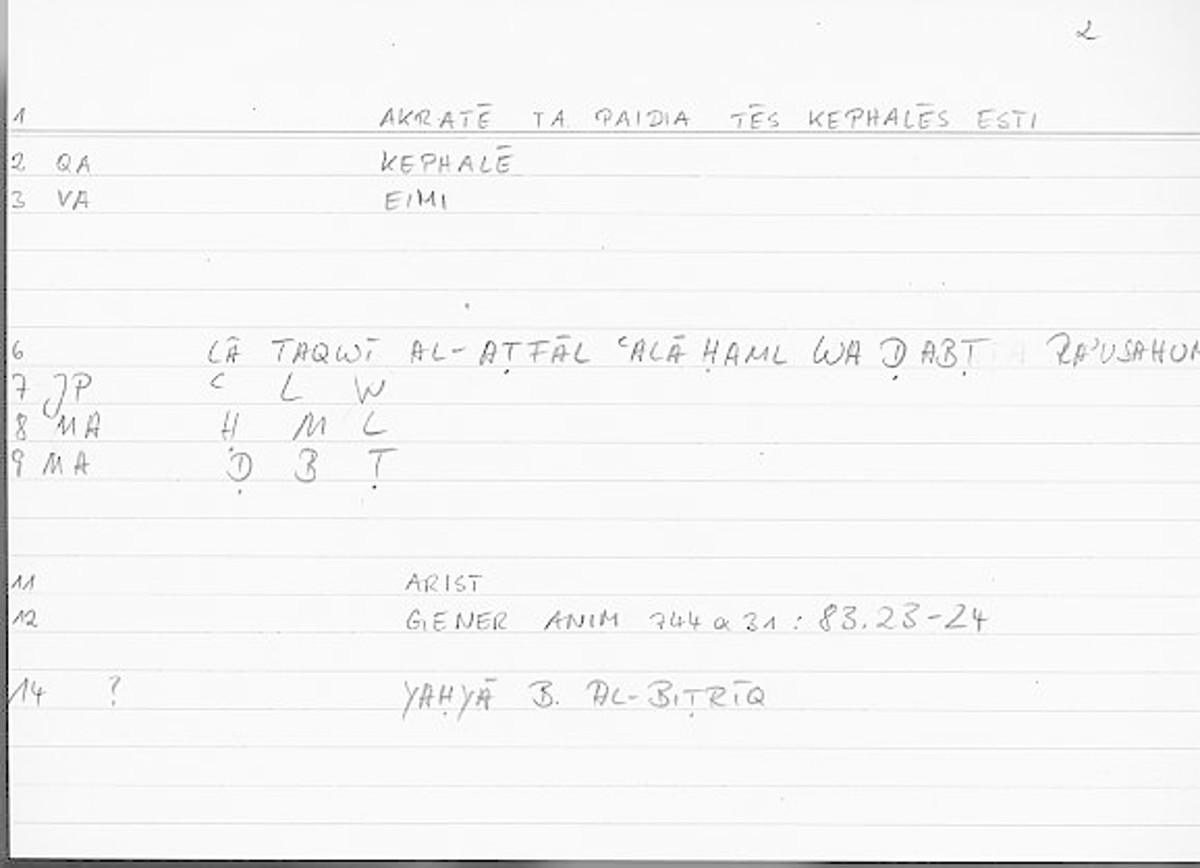 2
1 AKRATĒ TA PAIDIA TĒS KEPHALĒS ESTI
2 QA KEPHALĒ
3 VA EIMI
6 LĀ TAQWĪ AL-AṬFĀL ʿALĀ ḤAML WA ḌABṬ RA'USAHUM
7 JP ʿ L W
8 MA Ḥ M L
9 MA Ḍ B Ṭ
11 ARIST
12 GENER ANIM 744 a 31 : 83.23-24
14 ? YAḤYĀ B. AL-BIṬRĪQ